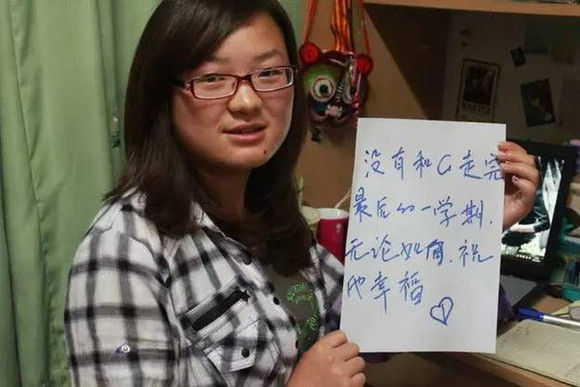 没有和G走完
最后的一学期，
无论如何，祝
他幸福♡